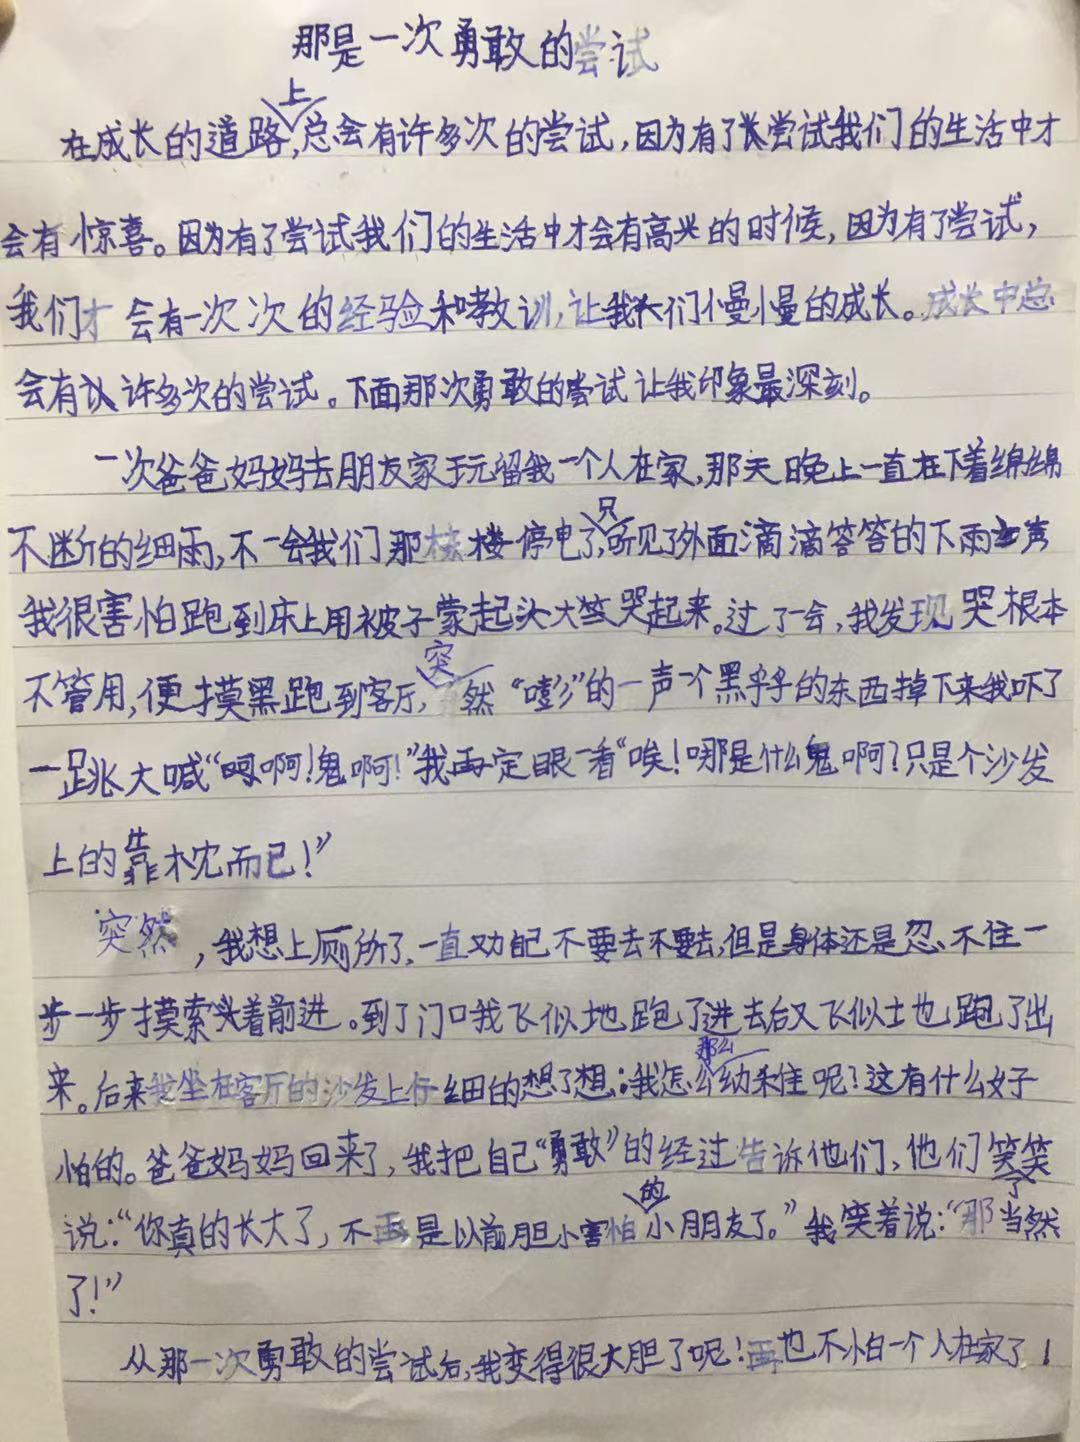 那是一次勇敢的尝试
在成长的道路上,总会有许多次的尝试,因为有了尝试我们的生活中才
会有惊喜。因为有了尝试我们的生活中才会有高兴的时候,因为有了尝试,
我们才会有一次次的经验和教训,让我们慢慢的成长。成长中总
会有许多次的尝试。下面那次勇敢的尝试让我印象最深刻。
一次爸爸妈妈去朋友家玩留我一个人在家,那天晚上一直在下着绵绵
不断的细雨,不一会我们那楼停电了,只听见了外面滴滴答答的下雨声
我很害怕跑到床上用被子蒙起头大哭起来。过了一会,我发现哭根本
不管用,便摸黑跑到客厅,突然“嘭”的一声一个黑乎乎的东西掉下来我吓了
一跳大喊“啊啊!鬼啊!”我再定眼一看“唉!哪是什么鬼啊?只是个沙发
上的靠枕而已!”
突然,我想上厕所了,一直劝自己不要去不要去,但是身体还是忍不住一
步一步摸索着前进。到了门口我飞似地跑了进去后又飞似地跑了出
来。后来我坐在客厅的沙发上仔细的想了想:我怎么那么幼稚呢?这有什么好
怕的。爸爸妈妈回来了,我把自己“勇敢”的经过告诉他们,他们笑了笑
说:“你真的长大了,不再是以前胆小害怕的小朋友了。”我笑着说:“那当然
了!”
从那一次勇敢的尝试后,我变得很大胆了呢!再也不怕一个人在家了!